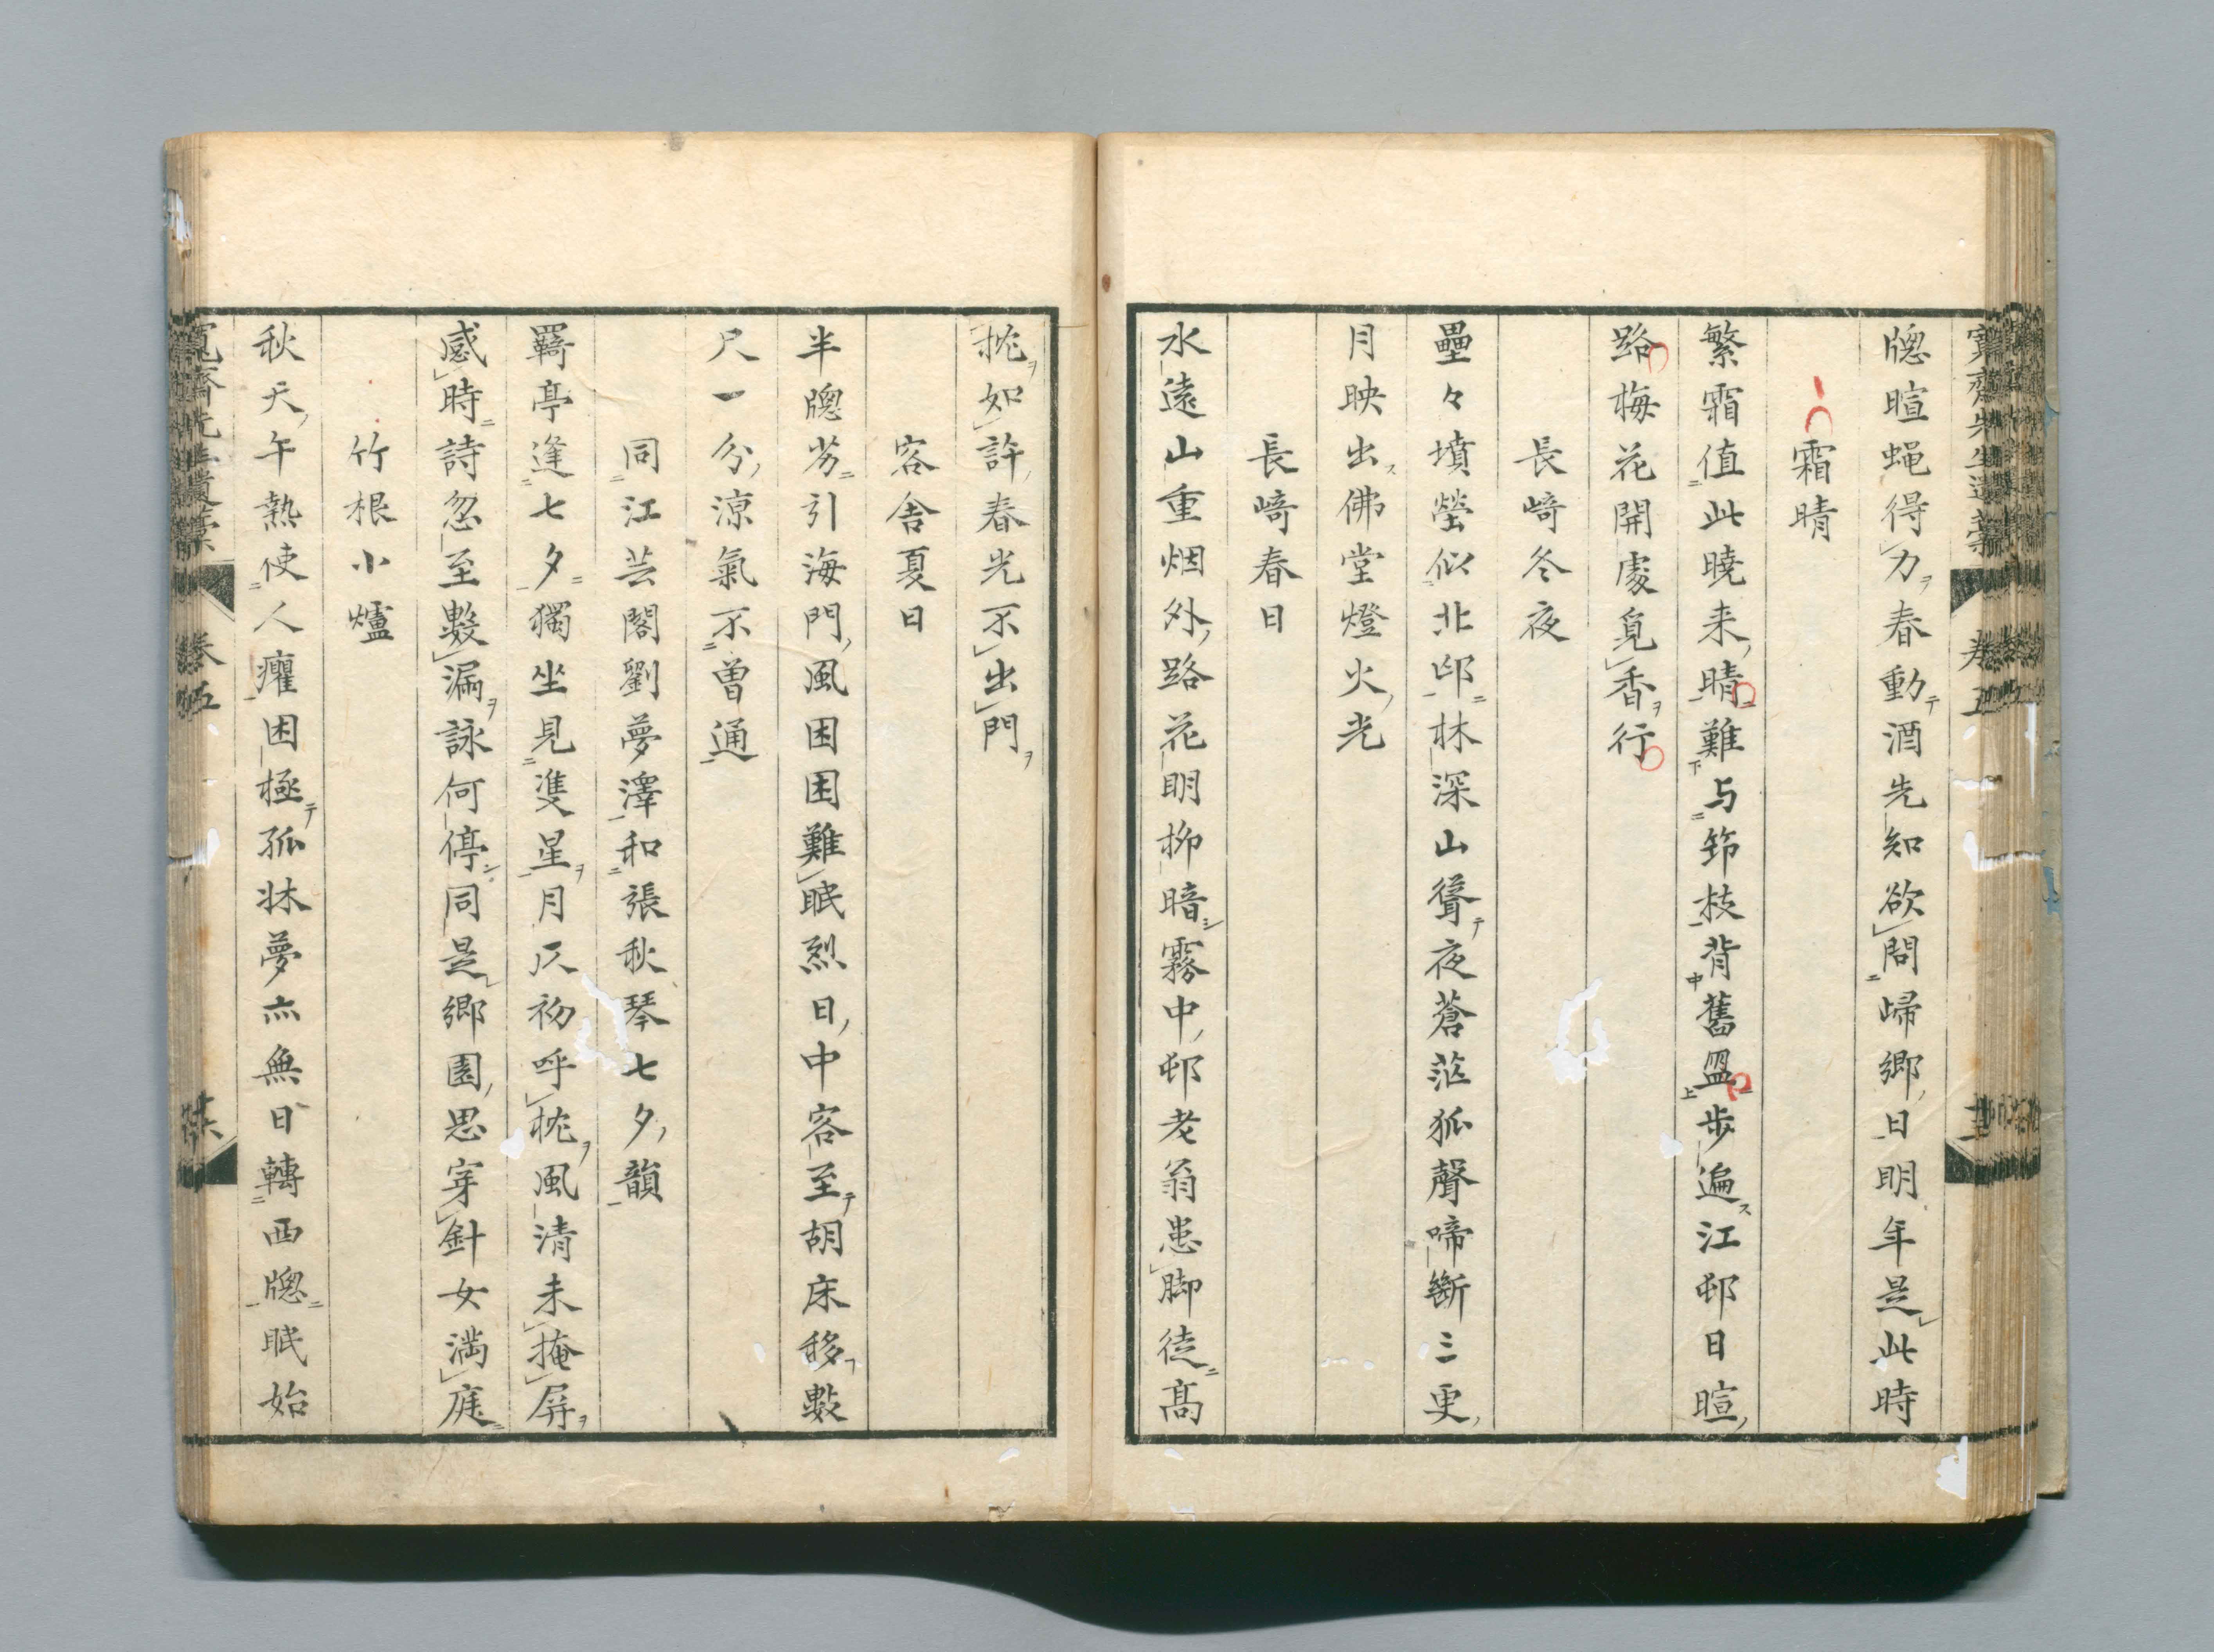 牎暄蝿得力春動酒先知欲問帰郷日明年是此時
霜晴
繁霜值此曉来晴難与筇枝背舊盟步遍江邨日暄
路梅花開處覓香行
長﨑冬夜
壘々墳塋似北邙林深山聳夜蒼茫狐聲啼斷三更
月映出佛堂燈火光
長﨑春日
水遠山重烟外路花明柳暗霧中邨老翁患脚徒髙
枕如許春光不出門
客舎夏日
半牎劣引海門風困困難眠烈日中客至胡床移數
尺一分涼氣不曽通
同江芸閣劉夢澤和張秋琴七夕韻
羇亭逢七夕獨坐見隻星月仄初呼枕風清未掩屏
感時詩忽至數漏詠何停同是郷園思穿針女満庭
竹根小爐
秋天午熱使人癯困極孤牀夢亦無日轉西牎眠始
寛齋先生遺稾 卷五
寛齋先生遺稾 卷五